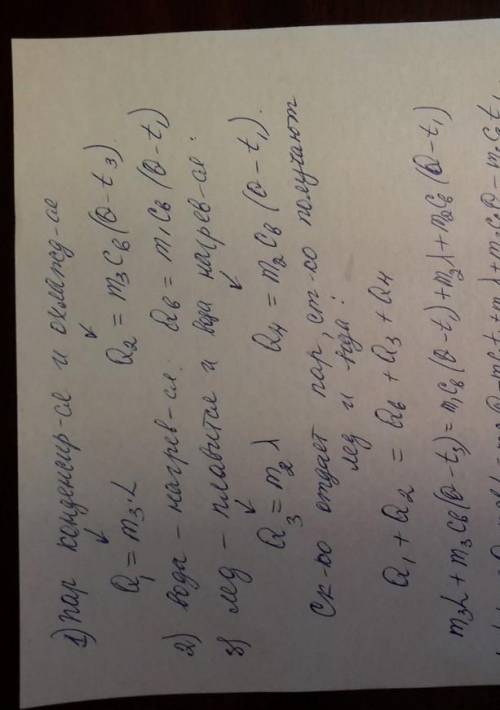 1) пар конденсир-ся и охлажд-ся
Q₁ = m₃·L Q₂ = m₃cв(θ-t₃)
2) вода - нагрев-ся. Qв = m₁cв(θ-t₁)
3) лед - плавится и вода нагрев-ся:
Q₃ = m₂λ Q₄ = m₂cв(θ-t₁).
Ск-ко отдает пар, ст-ко получают
лед и вода:
Q₁ + Q₂ = Qв + Q₃ + Q₄
m₃L + m₃cв(θ-t₃) = m₁cв(θ-t₁) + m₂λ + m₂cв(θ-t₁)